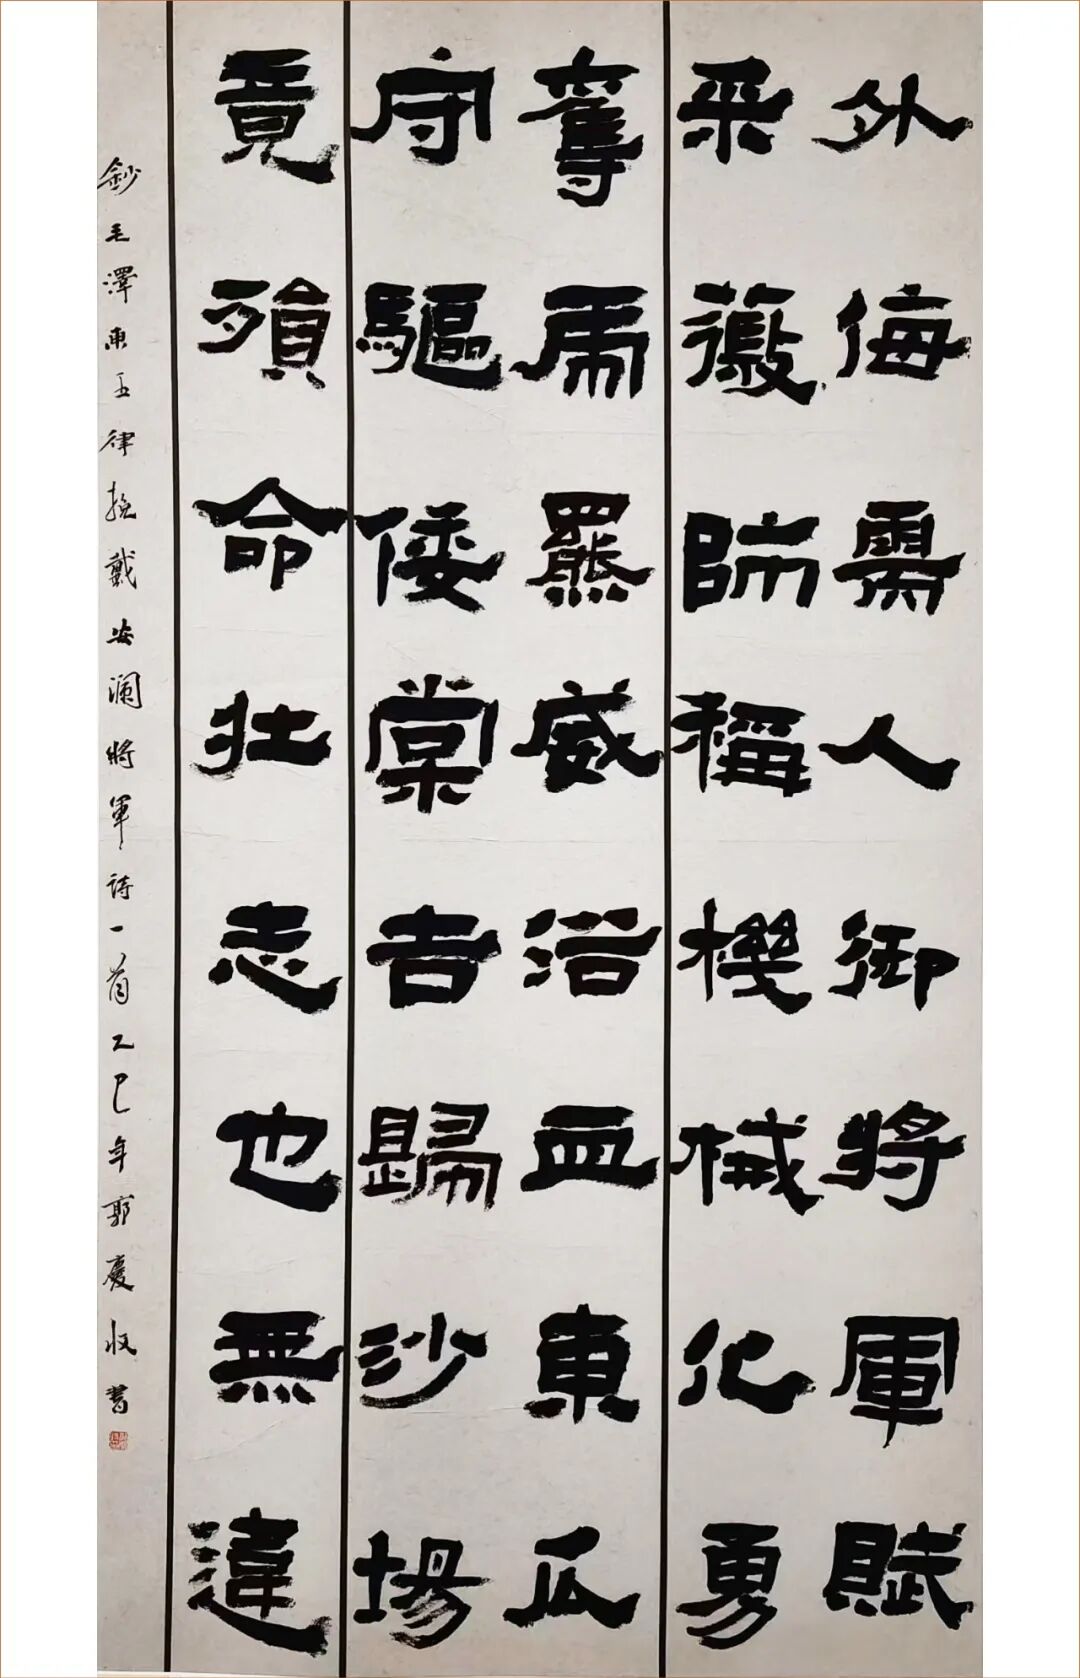 外侮需人御將軍賦
采薇師稱機械化勇
奪虎羆威浴血東瓜
守驅倭棠吉歸沙場
竟殞命壯志也無違
鈔毛澤東五律挽戴安瀾將軍詩一首乙巳年郭慶收書